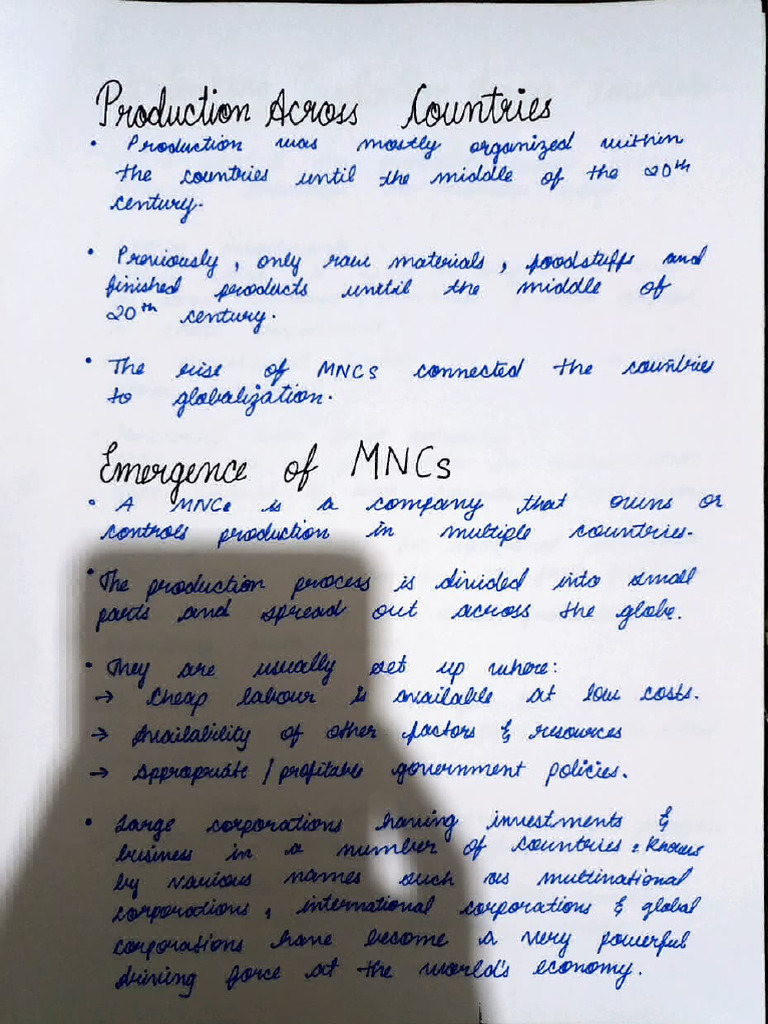 Production Across Countries
• Production was mostly organized within
the countries until the middle of the 20th
century.
• Previously, only raw materials, foodstuffs and
finished products unetil the middle of
20th century.
• The rise of MNCs connected the countries
to globalization.
Emergence of MNCs
• A MNCe is a company that owns or
controls production in multiple countries.
• The production process is divided into small
parts and spread out across the globe.
• They are usually set up where:
→ Cheap labour is available at low costs.
→ Availability of other factors & resources
→ Appropriate / profitable government policies.
• Large corporations having investments &
business in a number of countries, known
by various names such as multinational
corporations, international corporations & global
corporations have become a very powerful
driving force at the world's economy.